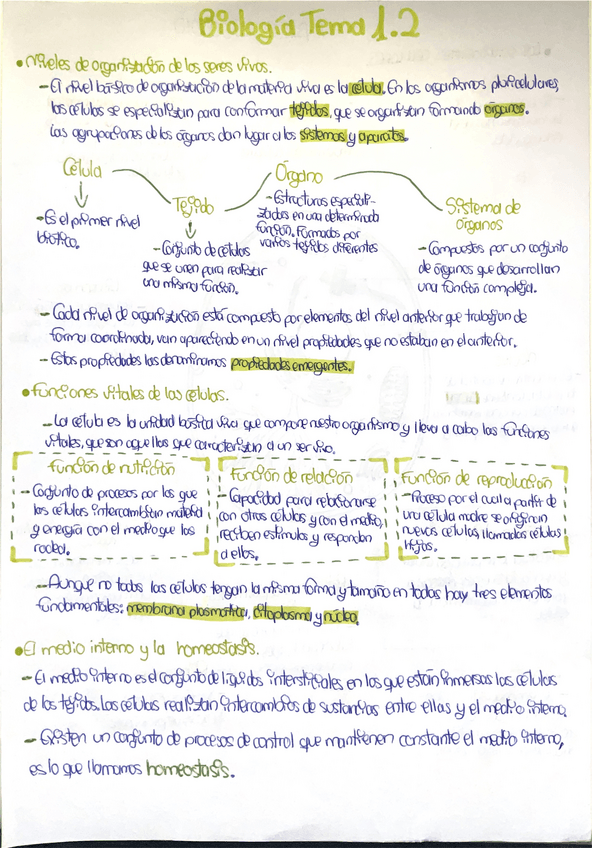 Biología Tema 1.2
• Niveles de organización de los seres vivos.
- El nivel básico de organización de la materia viva es la célula. En los organismos pluricelulares,
las células se especializan para conformar tejidos, que se organizan formando órganos.
Las agrupaciones de los órganos dan lugar a los sistemas y aparatos.
Célula
- Es el primer nivel
biótico.
Tejido
- Conjunto de células
que se unen para realizar
una misma función.
Órgano
- Estructuras especiali-
zadas en una determinada
función. Formados por
varios tejidos diferentes
Sistema de
órganos
- Compuestos por un conjunto
de órganos que desarrollan
una función compleja.
- Cada nivel de organización está compuesto por elementos del nivel anterior que trabajan de
forma coordinada, van apareciendo en un nivel propiedades que no estaban en el anterior.
- Estas propiedades las denominamos propiedades emergentes.
• Funciones vitales de las células.
- La célula es la unidad básica viva que compone nuestro organismo y lleva a cabo las funciones
vitales, que son aquellas que caracterizan a un ser vivo.
Función de nutrición
- Conjunto de procesos por los que
las células intercambian materia
y energía con el medio que las
rodea.
Función de relación
- Capacidad para relacionarse
con otras células y con el medio,
reciben estímulos y responden
a ellos.
Función de reproducción
- Proceso por el cual a partir de
una célula madre se originan
nuevas células llamadas células
hijas.
- Aunque no todas las células tengan la misma forma y tamaño en todas hay tres elementos
fundamentales: membrana plasmática, citoplasma y núcleo.
• El medio interno y la homeostasis.
- El medio interno es el conjunto de líquidos intersticiales en los que están inmersas las células
de los tejidos. Las células realizan intercambios de sustancias entre ellas y el medio interno.
- Existen un conjunto de procesos de control que mantienen constante el medio interno,
es lo que llamamos homeostasis.